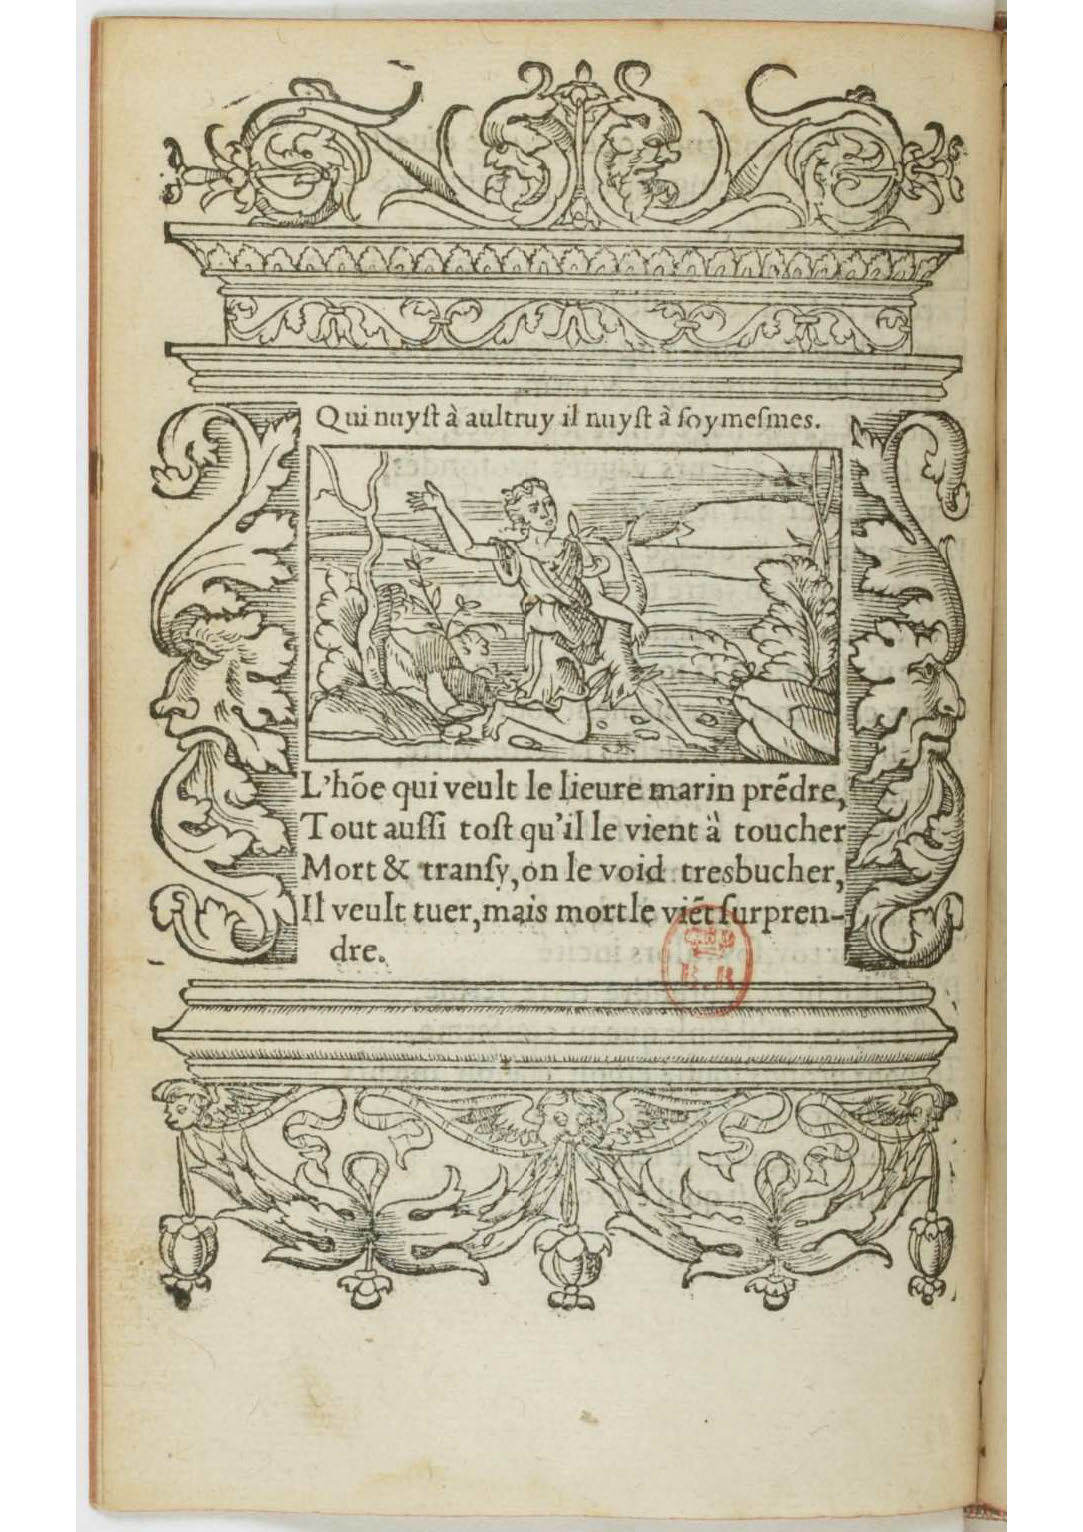 Qui nuyſt à aultruy il nuyſt à ſoymeſmes.
L'hõe qui veult le lieure marin prẽdre,
Tout auſſi toſt qu'il le vient à toucher
Mort & tranſy, on le void tresbucher,
Il veult tuer, mais mort le viẽt ſurpren-
dre.